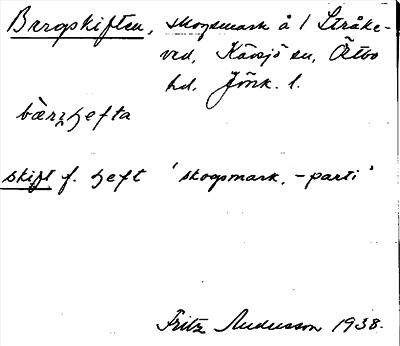 Bargskiften, skogsmark å 1 Stråke-
ved, Kävsjö sn, Östbo
hd. Jönk. l.
bàrʒʒefta
skift f. ʒeft 'skogsmark, -parti'
Fritz Andersson 1938.